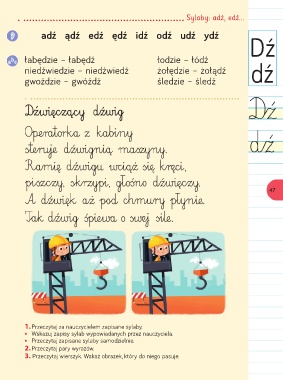 Sylaby: adź, edź...
adź ądź edź ędź idź odź udź ydź
łabędzie – łabędź
niedźwiedzie – niedźwiedź
gwoździe – gwóźdź
łodzie – łódź
żołędzie – żołądź
śledzie – śledź
Dźwięczący dźwig
Operatorka z kabiny
steruje dźwignią maszyny.
Ramię dźwigu wciąż się kręci,
piszczy, skrzypi, głośno dźwięczy.
A dźwięk aż pod chmury płynie.
Tak dźwig śpiewa o swej sile.
1. Przeczytaj za nauczycielem zapisane sylaby.
• Wskazuj zapisy sylab wypowiadanych przez nauczyciela.
• Przeczytaj zapisane sylaby samodzielnie.
2. Przeczytaj pary wyrazów.
3. Przeczytaj wierszyk. Wskaż obrazek, który do niego pasuje.
Dź
dź
Dź
dź
47